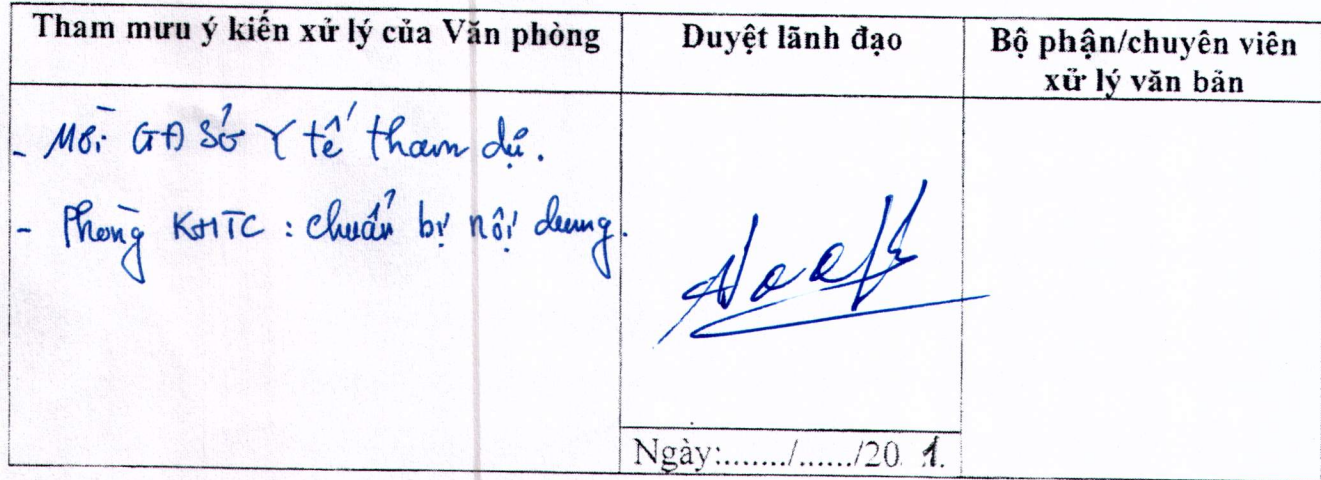 Tham mưu ý kiến xử lý của Văn phòng
Duyệt lãnh đạo
Bộ phận/chuyên viên
xử lý văn bản
- Mời GĐ Sở Y tế tham dự.
- Phòng KHTC : chuẩn bị nội dung.
Ngày:......./....../20 1.